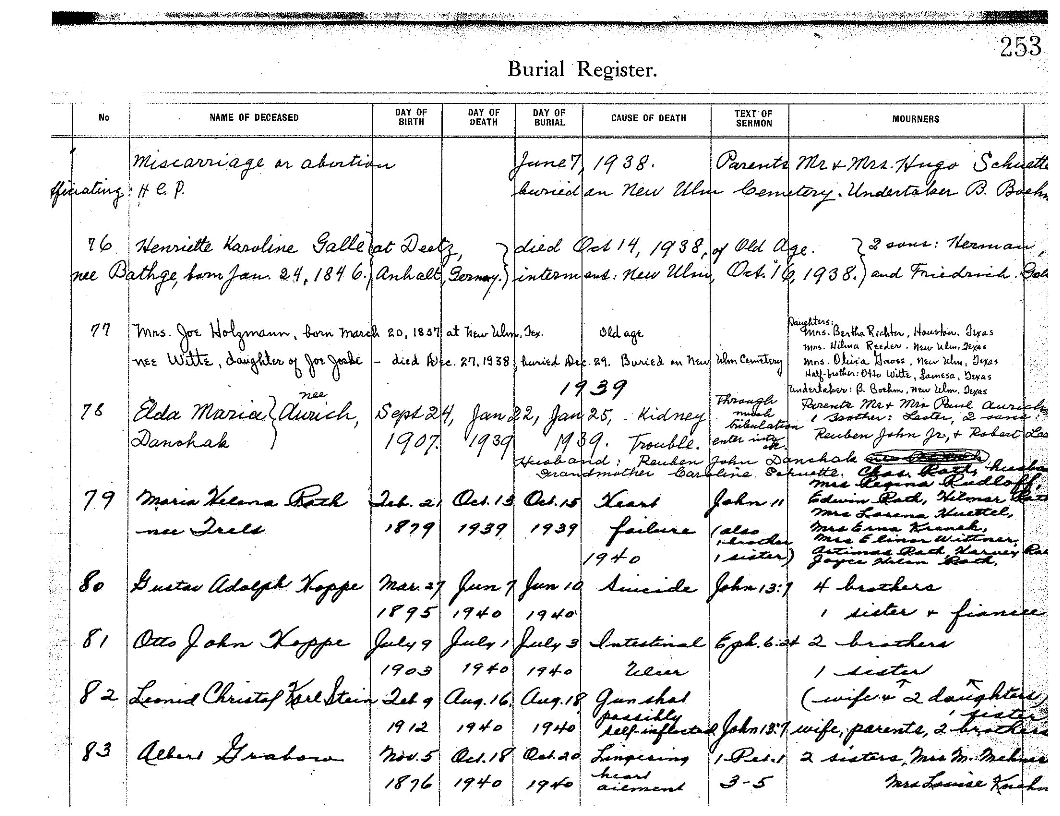 253
Burial Register.
No NAME OF DECEASED DAY OF BIRTH DAY OF DEATH DAY OF BURIAL CAUSE OF DEATH TEXT OF SERMON MOURNERS
Miscarriage or abortion June 7, 1938. Parents Mr & Mrs. Hugo Schuette
fficiating: H C P. buried on New Ulm Cemetery. Undertaker B. Boehm
76 Henriette Karoline Galle at Deetz, died Oct 14, 1938, of Old Age. 2 sons: Herman,
nee Bathge, born Jan. 24, 1846. Anhalt, Germany. interment: New Ulm, Oct. 16, 1938. and Friedrich
77 Mrs. Joe Holzmann, born March 20, 1857 at New Ulm, Tex. Old age
nee Witte, daughter of Joe - died Dec. 27, 1938, buried Dec. 29. Buried on New Ulm Cemetery
Daughters:
Mrs. Bertha Richter, Houston, Texas
Mrs. Wilma Reeder. New Ulm, Texas
Mrs. Olivia Gross, New Ulm, Texas
Half-brother: Otto Witte, Lamesa, Texas
Undertaker: B. Boehm, New Ulm, Texas
1939
78 Elda Maria nee Aurich, Sept 24, Jan 22, Jan 25, Kidney Through much Parents Mr & Mrs Paul Aurich
Danchak 1907. 1939 1939. Trouble. tribulation enter into 1 brother Lester, 2 sons:
Reuben John Jr, & Robert
Husband: Reuben John Danchak
Grandmother Caroline Schuette.
79 Maria Helena Rath Feb. 21 Oct. 13 Oct. 15 Heart John 11 Chas. Rath, husba
nee Trels 1879 1939 1939 failure (also 1 brother 1 sister)
Mrs Regina Rudloff,
Edwin Rath, Hilmar Rat
Mrs Lorena Huettel,
Mrs Erna Krenek,
Mrs Elinor Wittner,
Artimas Rath, Harvey Ra
Joyce Helen Rath,
1940
80 Gustav Adolph Hoppe Mar. 27 Jun 7 Jun 10 Suicide John 13:7 4 brothers
1895 1940 1940 1 sister & fiancee
81 Otto John Hoppe July 9 July 1 July 3 Intestinal Eph. 6:24 2 brothers
1903 1940 1940 Ulcer 1 sister
82 Leonid Christof Karl Stein Feb 9 Aug. 16, Aug. 18 Gun shot (wife & 2 daughters)
1912 1940 1940 possibly self-inflicted John 13:7 wife, parents, 2 brothers 1 sister
83 Albert Grabow Nov. 5 Oct. 18 Oct. 20 Lingering 1 Pet. 1 2 sisters, Mrs M.
1876 1940 1940 heart ailment 3-5 Mrs Louise